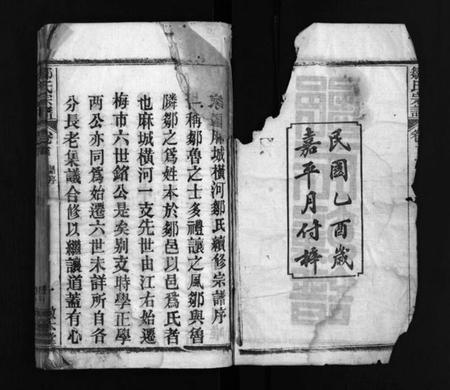 民國乙酉歲
嘉平月付梓
鄒氏宗譜
麻城橫河鄒氏續修宗譜序
稱鄒魯之士多禮讓之風鄒與魯
隣鄒之爲姓本於鄒邑以邑爲氏者
也麻城橫河一支先世由江右始遷
梅市六世銘公是矣別支時學正學
兩公亦同爲始遷六世未詳所自各
分長老集議合修以繼議道蓋有心
氏宗譜